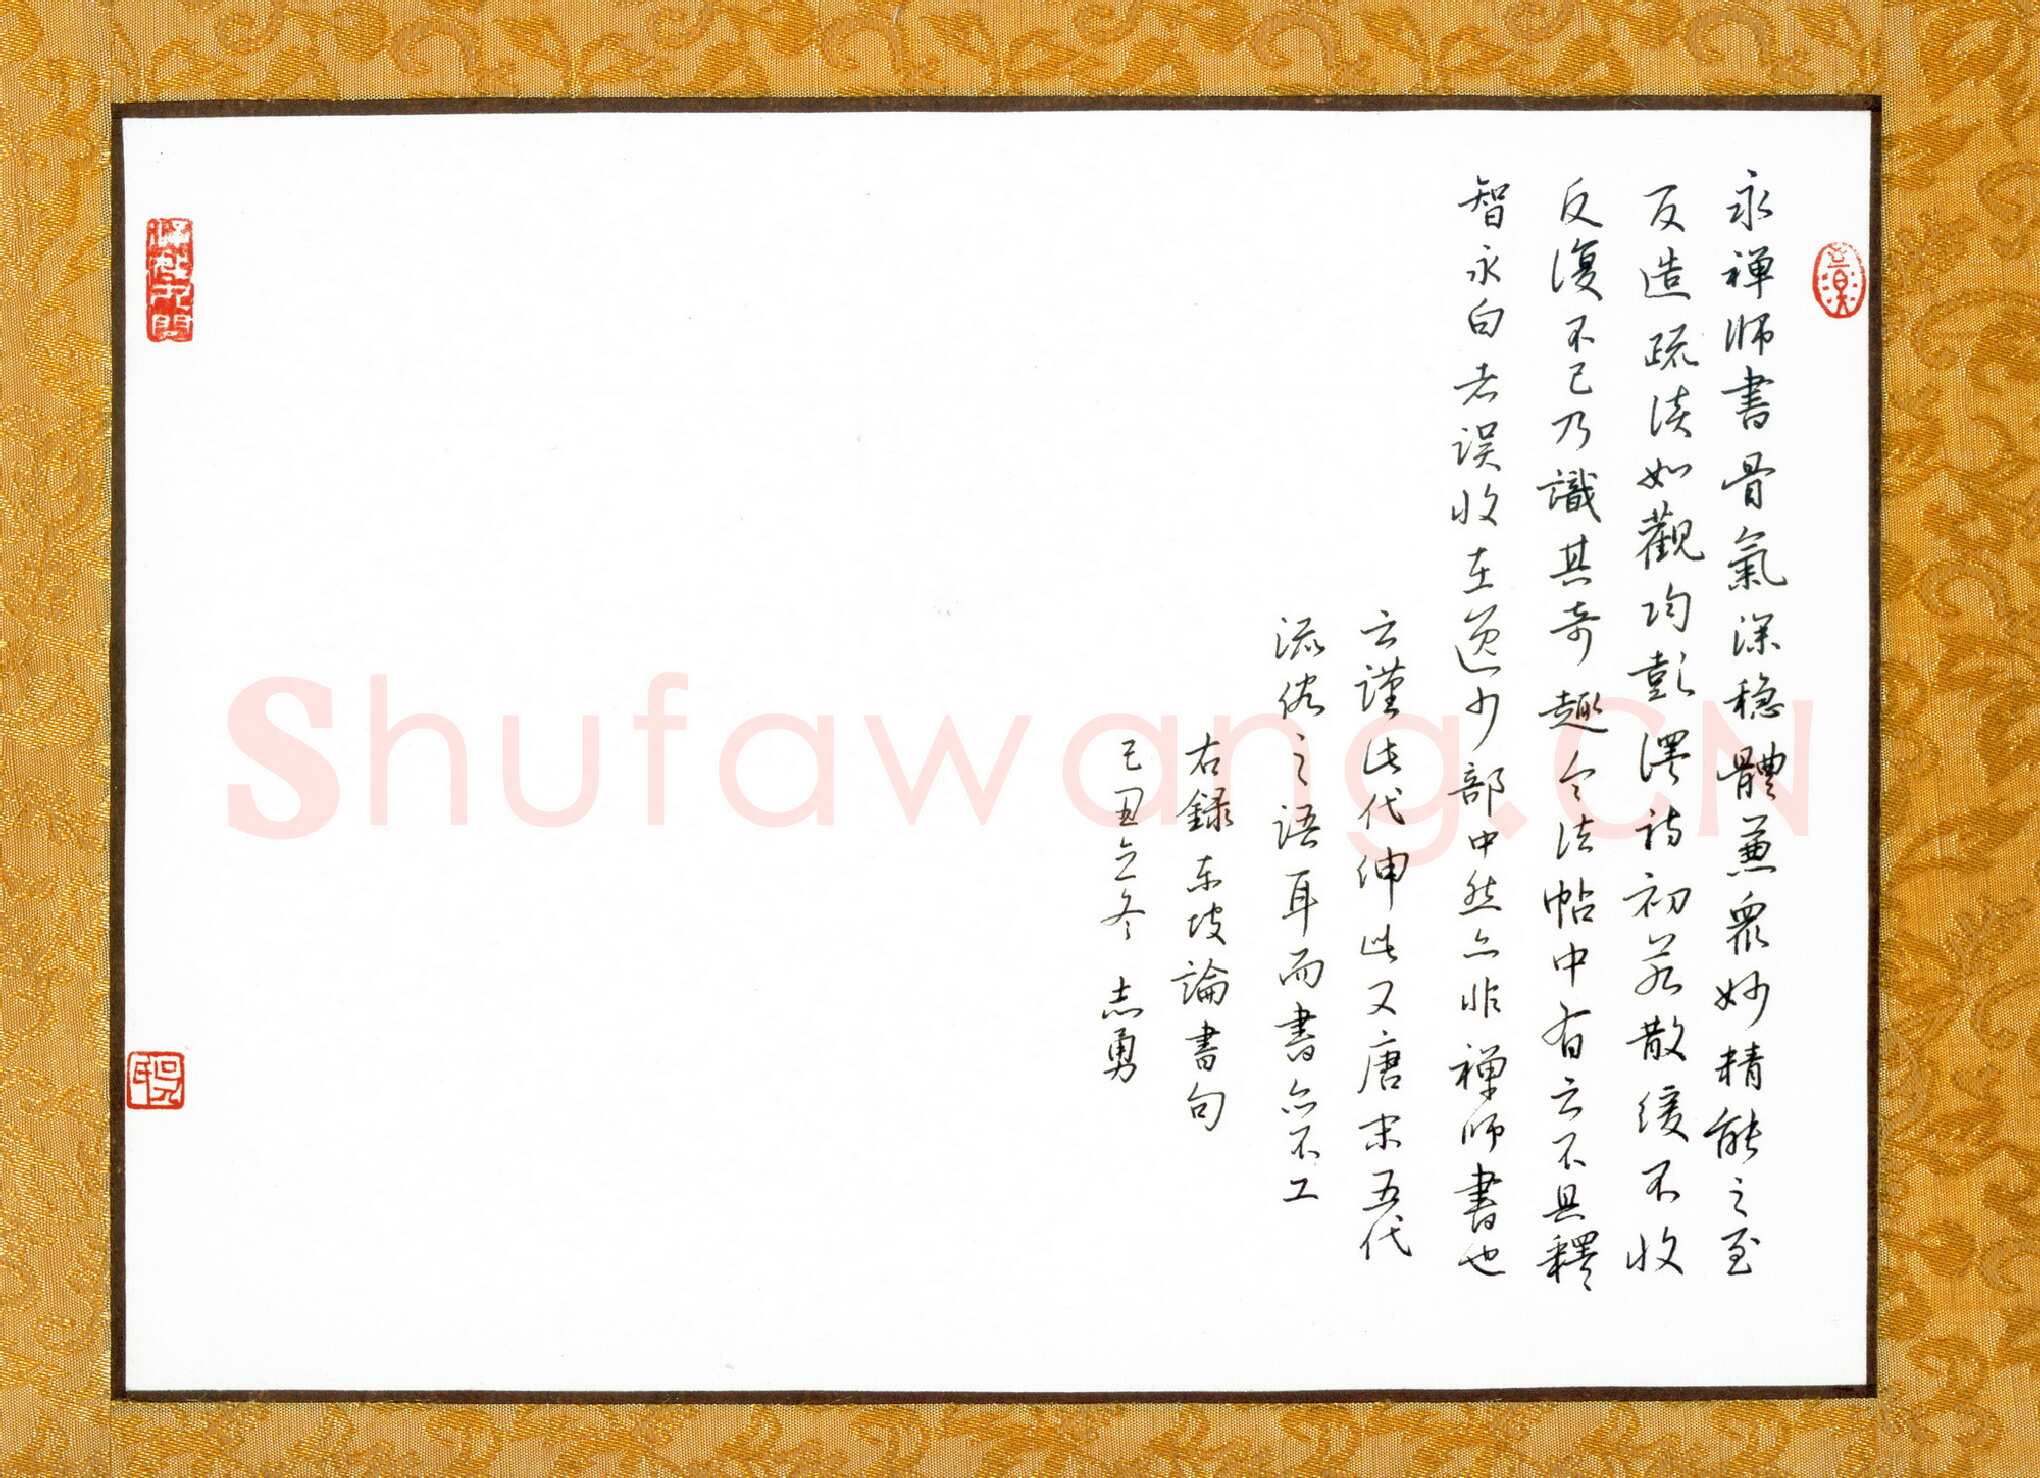 永禪師書骨氣深稳體兼衆妙精能之至
反造疏淡如觀陶彭澤詩初若散缓不收
反復不已乃識其奇趣今法帖中有云不具釋
智永白者误收在逸少部中然亦非禪師書也
云謹此代伸此乃唐末五代
流俗之語耳而書亦不工
右録东坡論書句
己丑立冬 志勇
Shufawang.CN